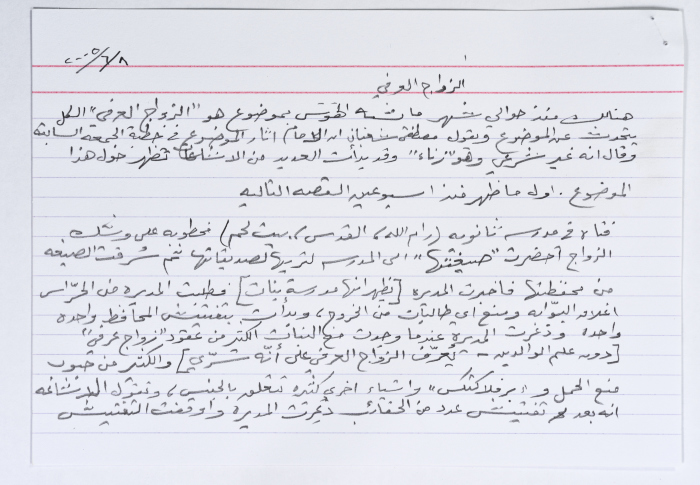 ٢٠٠٥/٦/٨
الزواج العرفي
هنالك منذ حوالي شهر ما يشبه الهَوَس بموضوع هو "الزواج العرفي" الكل
يتحدث عن الموضوع ويقول مصطفى شعبان ان الامام اثار الموضوع في خطبة الجمعة السابقة
وقال انه غير شرعي وهو "زناء" وقد بدأت العديد من الاشاعات تظهر حول هذا
الموضوع . اول ما ظهر منذ اسبوعين القصه التاليه
فتاة في مدرسه ثانويه (رام الله، القدس، بيت لحم) مخطوبه على وشك
الزواج أحضرت "صيغتها" الى المدرسه لتريها لصديقاتها ثم سُرقت الصيغه
من محفظتها فأخبرت المديره [يظهر انها مدرسة بنات] فطلبت المديره من الحرّاس
اغلاق البوّابه ومنع اي طالبات من الخروج، وبدأت بتفتيش المحافظ واحده
واحده وذعرت المديرة عندما وجدت مع البنات الكثير من عقود "زواج عرفي"
[دون علم الوالدين - يُعرّف الزواج العرفي على أنّه سرّي] والكثير من حبوب
منع الحمل و "برفلاكتكس" واشياء اخرى كثيره تتعلق بالجنس، وتقول الاشاعه
انه بعد تفتيش عدد من الحقائب ذُعِرت المديره وأوقفت التفتيش